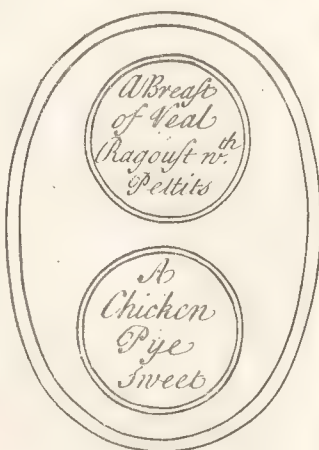 A Breaſt
of Veal
Ragouſt wth.
Peltits
A
Chicken
Pye
Sweet